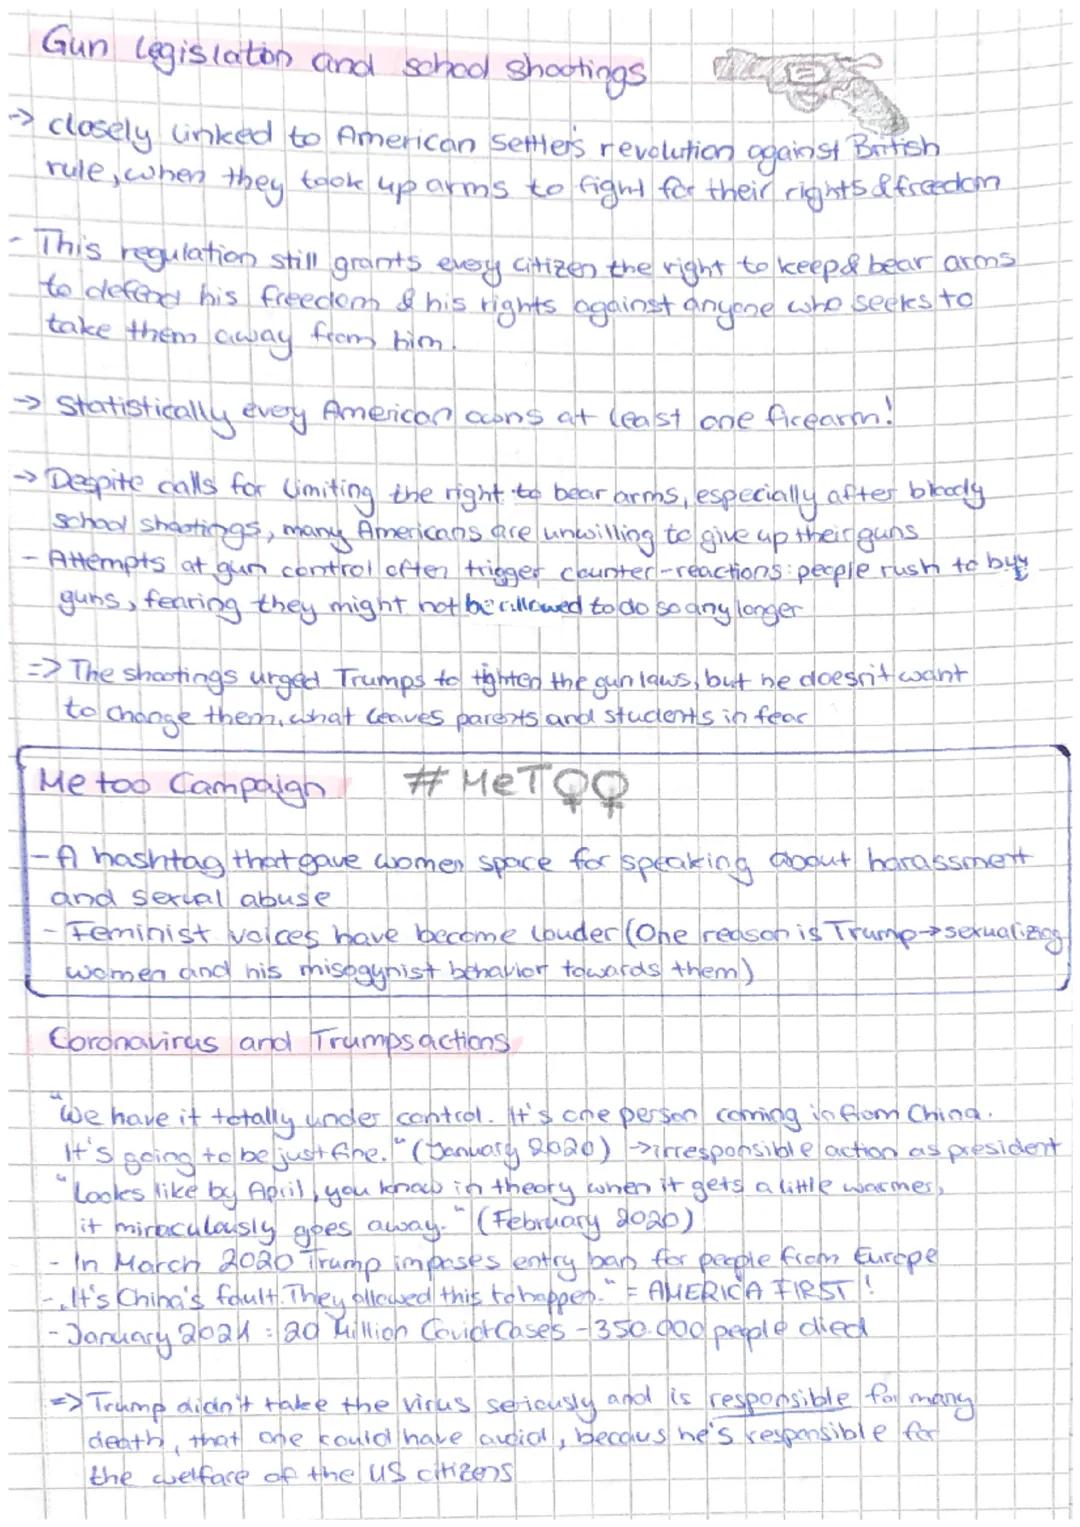 Gun legislation and school shootings
-> closely linked to American Settler's revolution against British
rule, when they took up arms to fight for their rights & freedom
- This regulation still grants every citizen the right to keep & bear arms
to defend his freedom & his rights against anyone who seeks to
take them away from him.
-> Statistically every American owns at least one firearm!
-> Despite calls for limiting the right to bear arms, especially after bloody
school shootings, many Americans are unwilling to give up their guns
- Attempts at gun control often trigger counter-reactions: people rush to buy
guns, fearing they might not be allowed to do so any longer
=> The shootings urged Trumps to tighten the gun laws, but he doesn't want
to change them, what leaves parents and students in fear
Me too Campaign #MeToo
- A hashtag that gave women space for speaking about harassment
and sexual abuse
- Feminist voices have become louder (One reason is Trump->sexualizing
women and his misogynist behavior towards them)
Coronavirus and Trumps actions
"We have it totally under control. It's one person coming in from China.
It's going to be just fine." (January 2020) ->irresponsible action as president
"Looks like by April, you know in theory when it gets a little warmer,
it miraculously goes away." (February 2020)
- In March 2020 Trump imposes entry ban for people from Europe
- "It's China's fault. They allowed this to happen." = AMERICA FIRST!
- January 2021: 20 Million Covid Cases - 350.000 people died
=> Trump didn't take the virus seriously and is responsible for many
death, that one could have avoid, becaus he's responsible for
the welfare of the US citizens